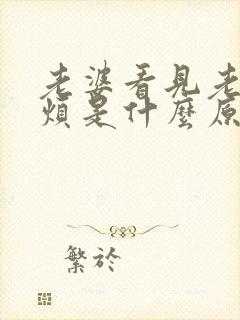 老婆看見老
煩是什麼原
繁於